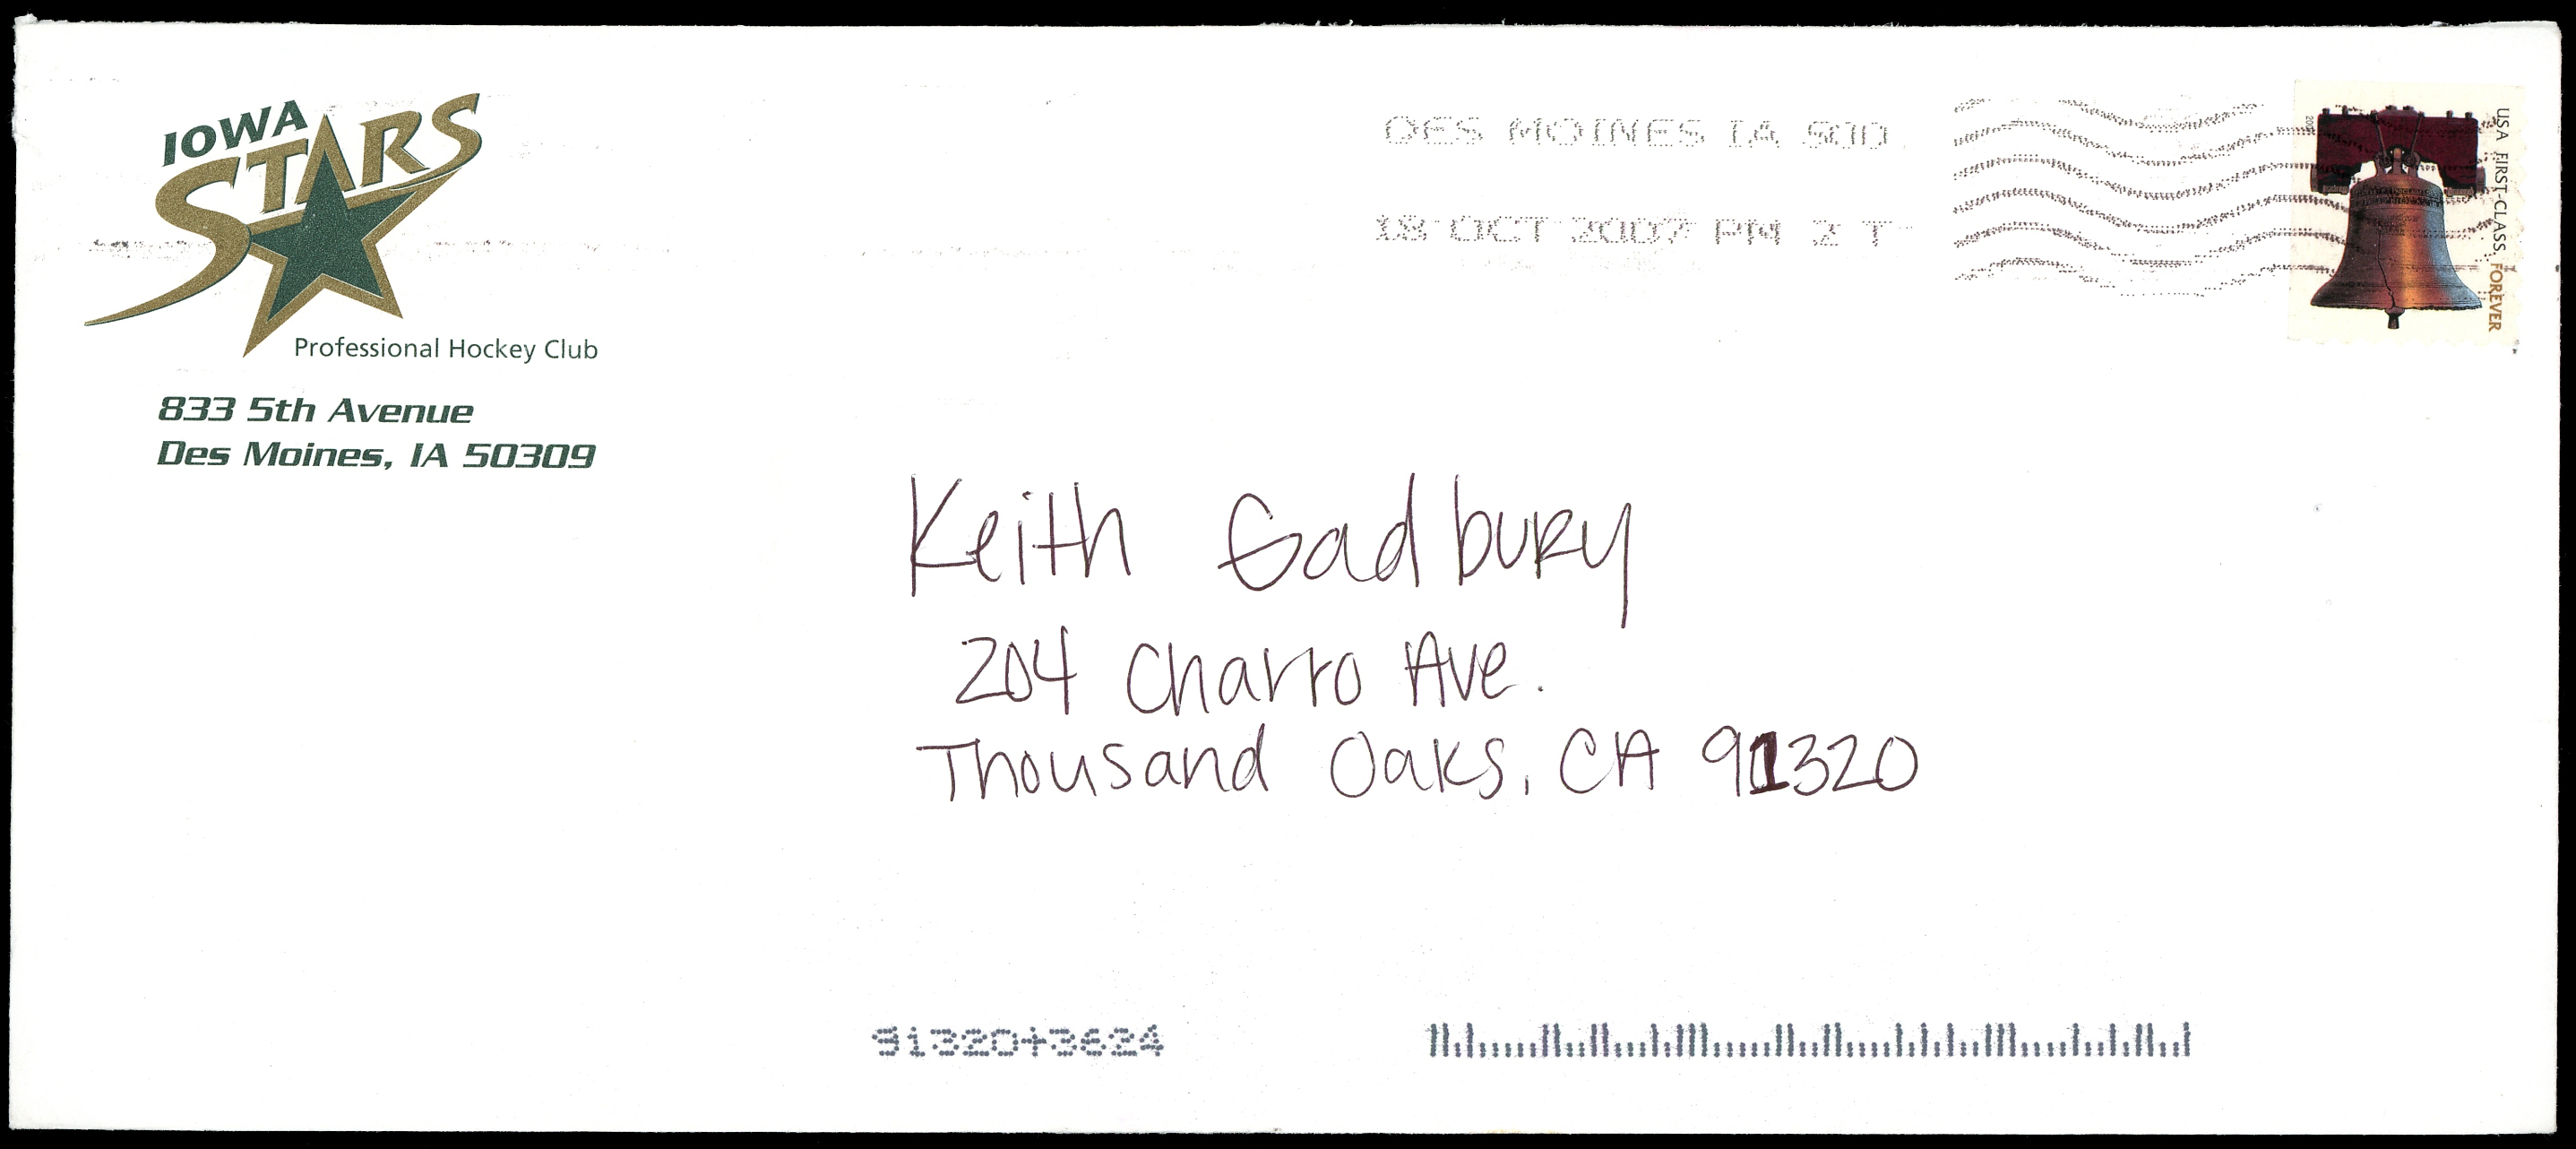 IOWA
STARS
Professional Hockey Club
833 5th Avenue
Des Moines, IA 50309
DES MOINES IA
18 OCT 2007 PM 2 T
USA FIRST-CLASS FOREVER
Keith Gadbury
204 Charro Ave.
Thousand Oaks, CA 91320
91320+3624